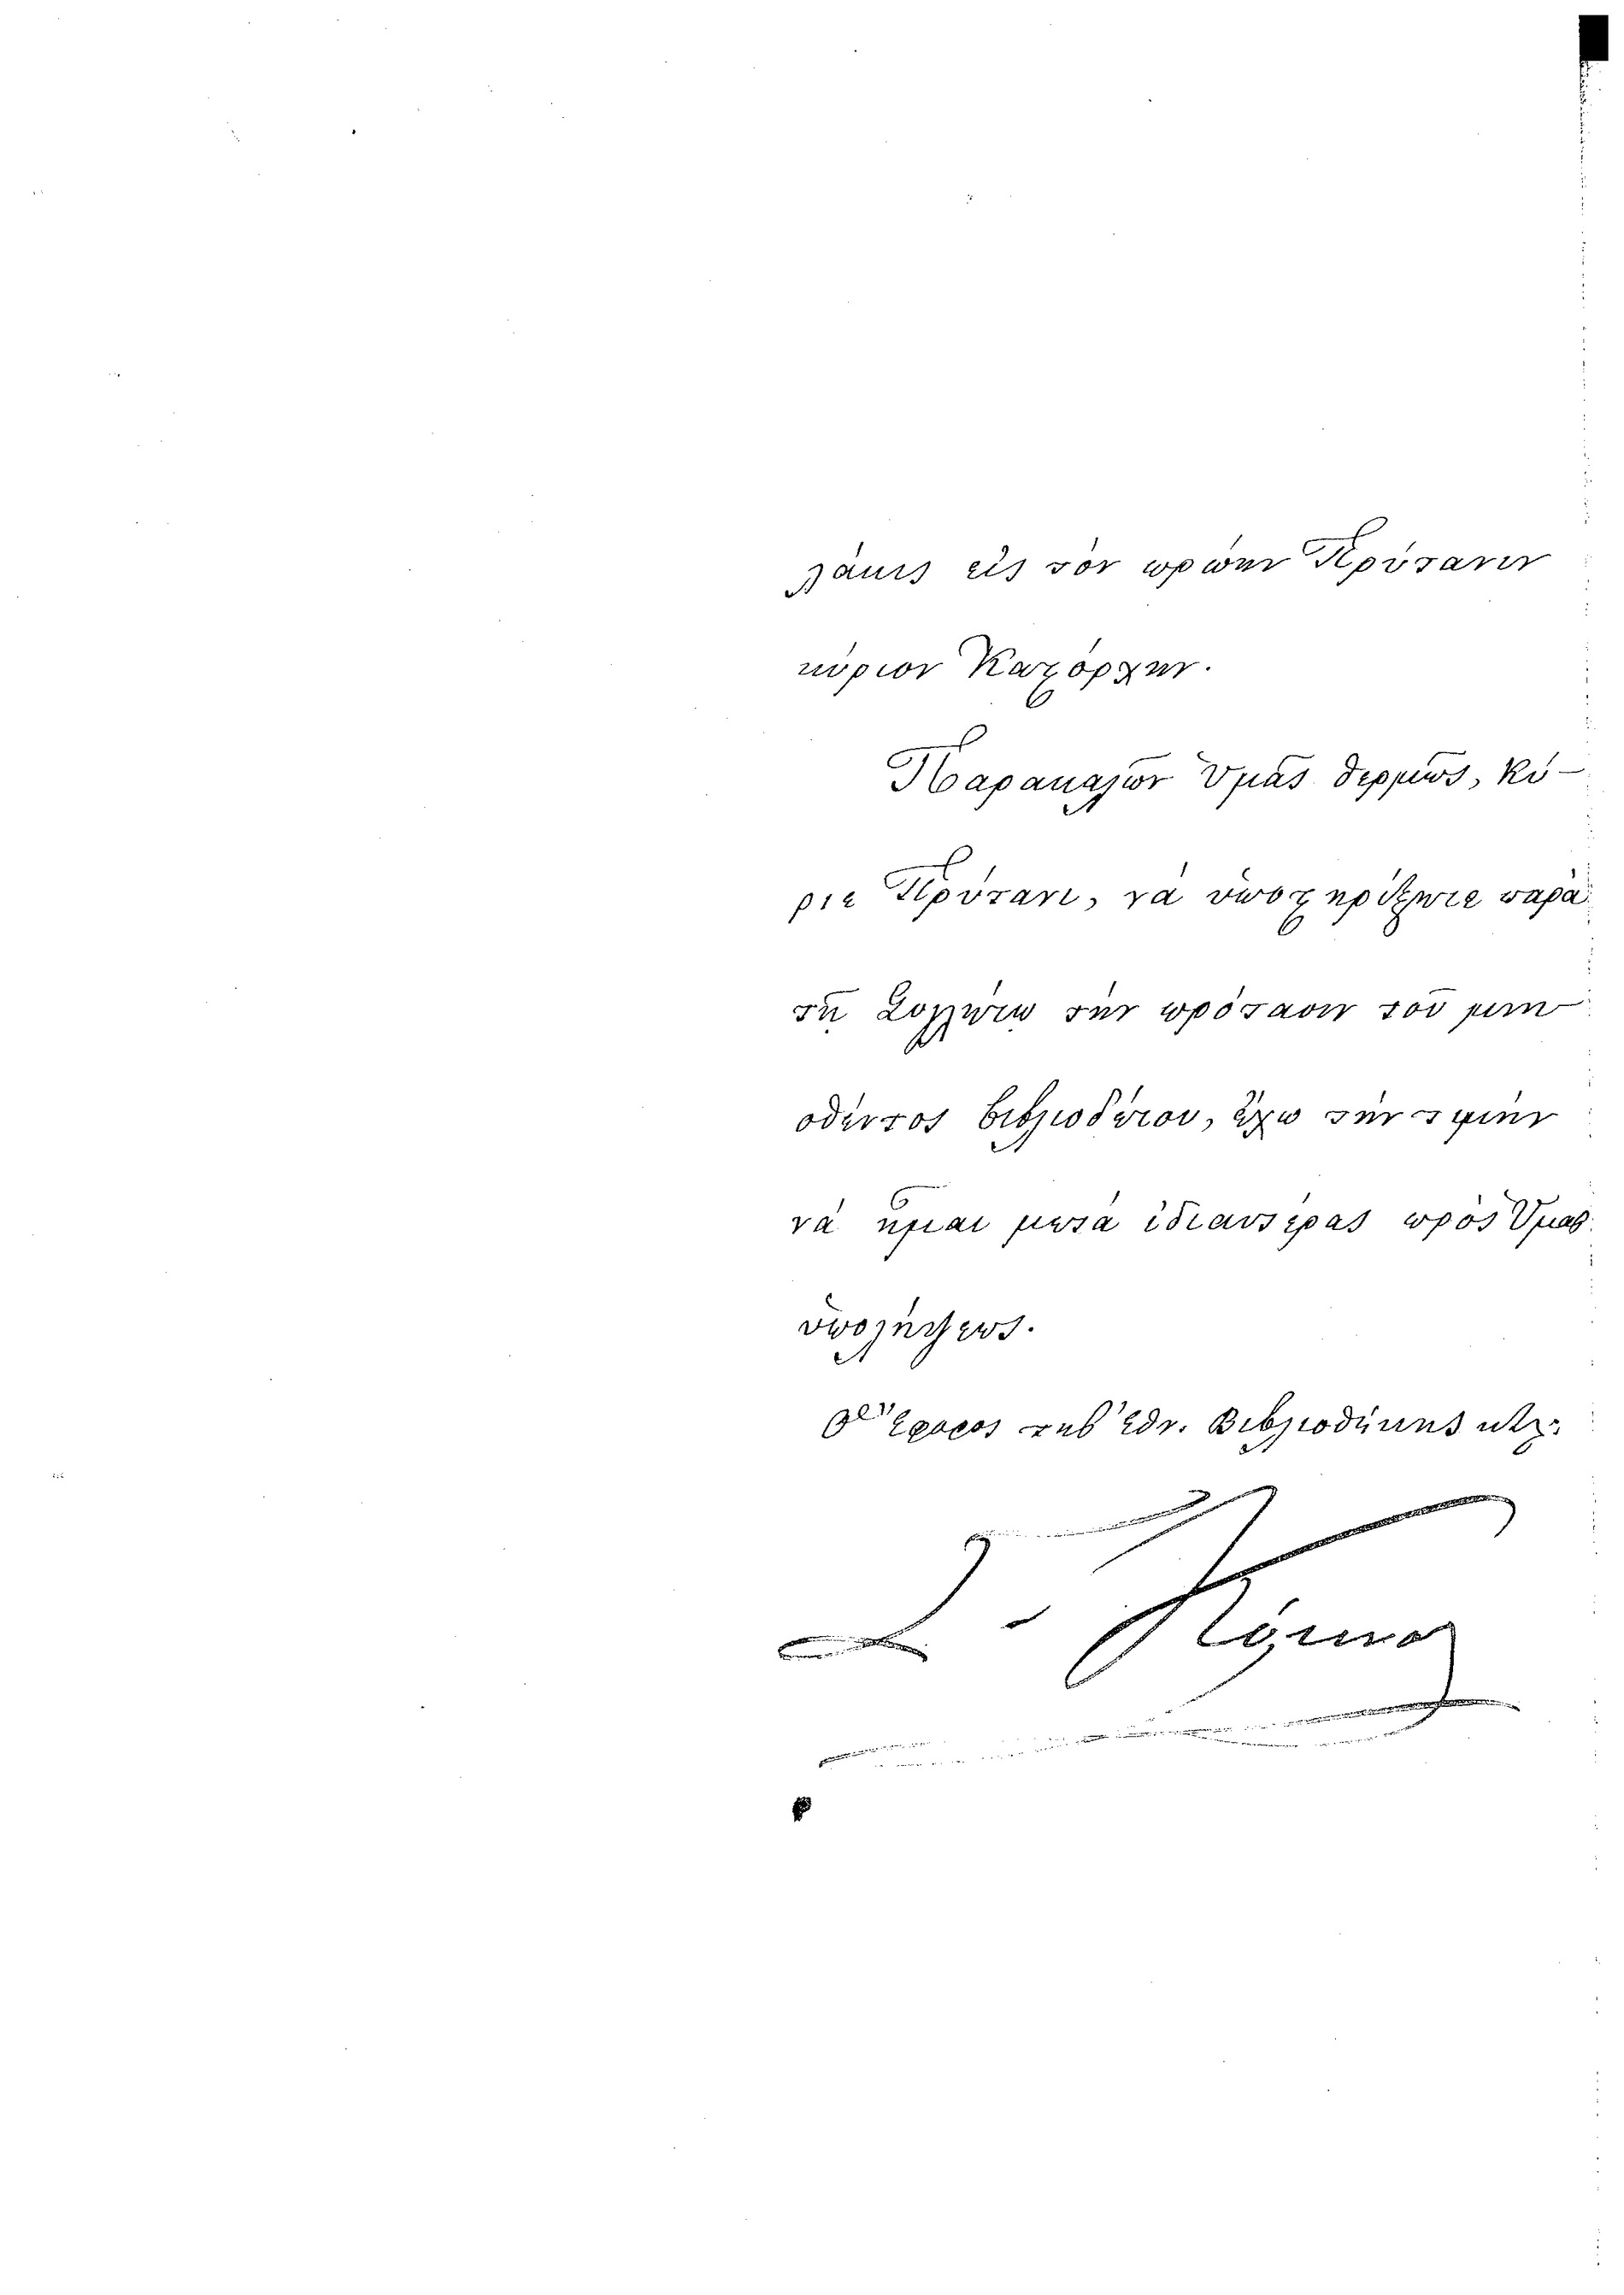 λάκις εἰς τὸν πρώην Πρύτανιν
κύριον Κατόρχην.
Παρακαλῶν Ὑμᾶς θερμῶς, Κύ-
ριε Πρύτανι, νὰ ὑποστηρίξητε παρὰ
τῇ Συγκλήτῳ τὴν πρότασιν τοῦ μνη-
σθέντος βιβλιοθέτου, ἔχω τὴν τιμὴν
νὰ ἦμαι μετὰ ἰδιαιτέρας πρὸς Ὑμᾶς
ὑπολήψεως.
Ὁ Ἔφορος τῆς Ἐθν. Βιβλιοθήκης κτλ.